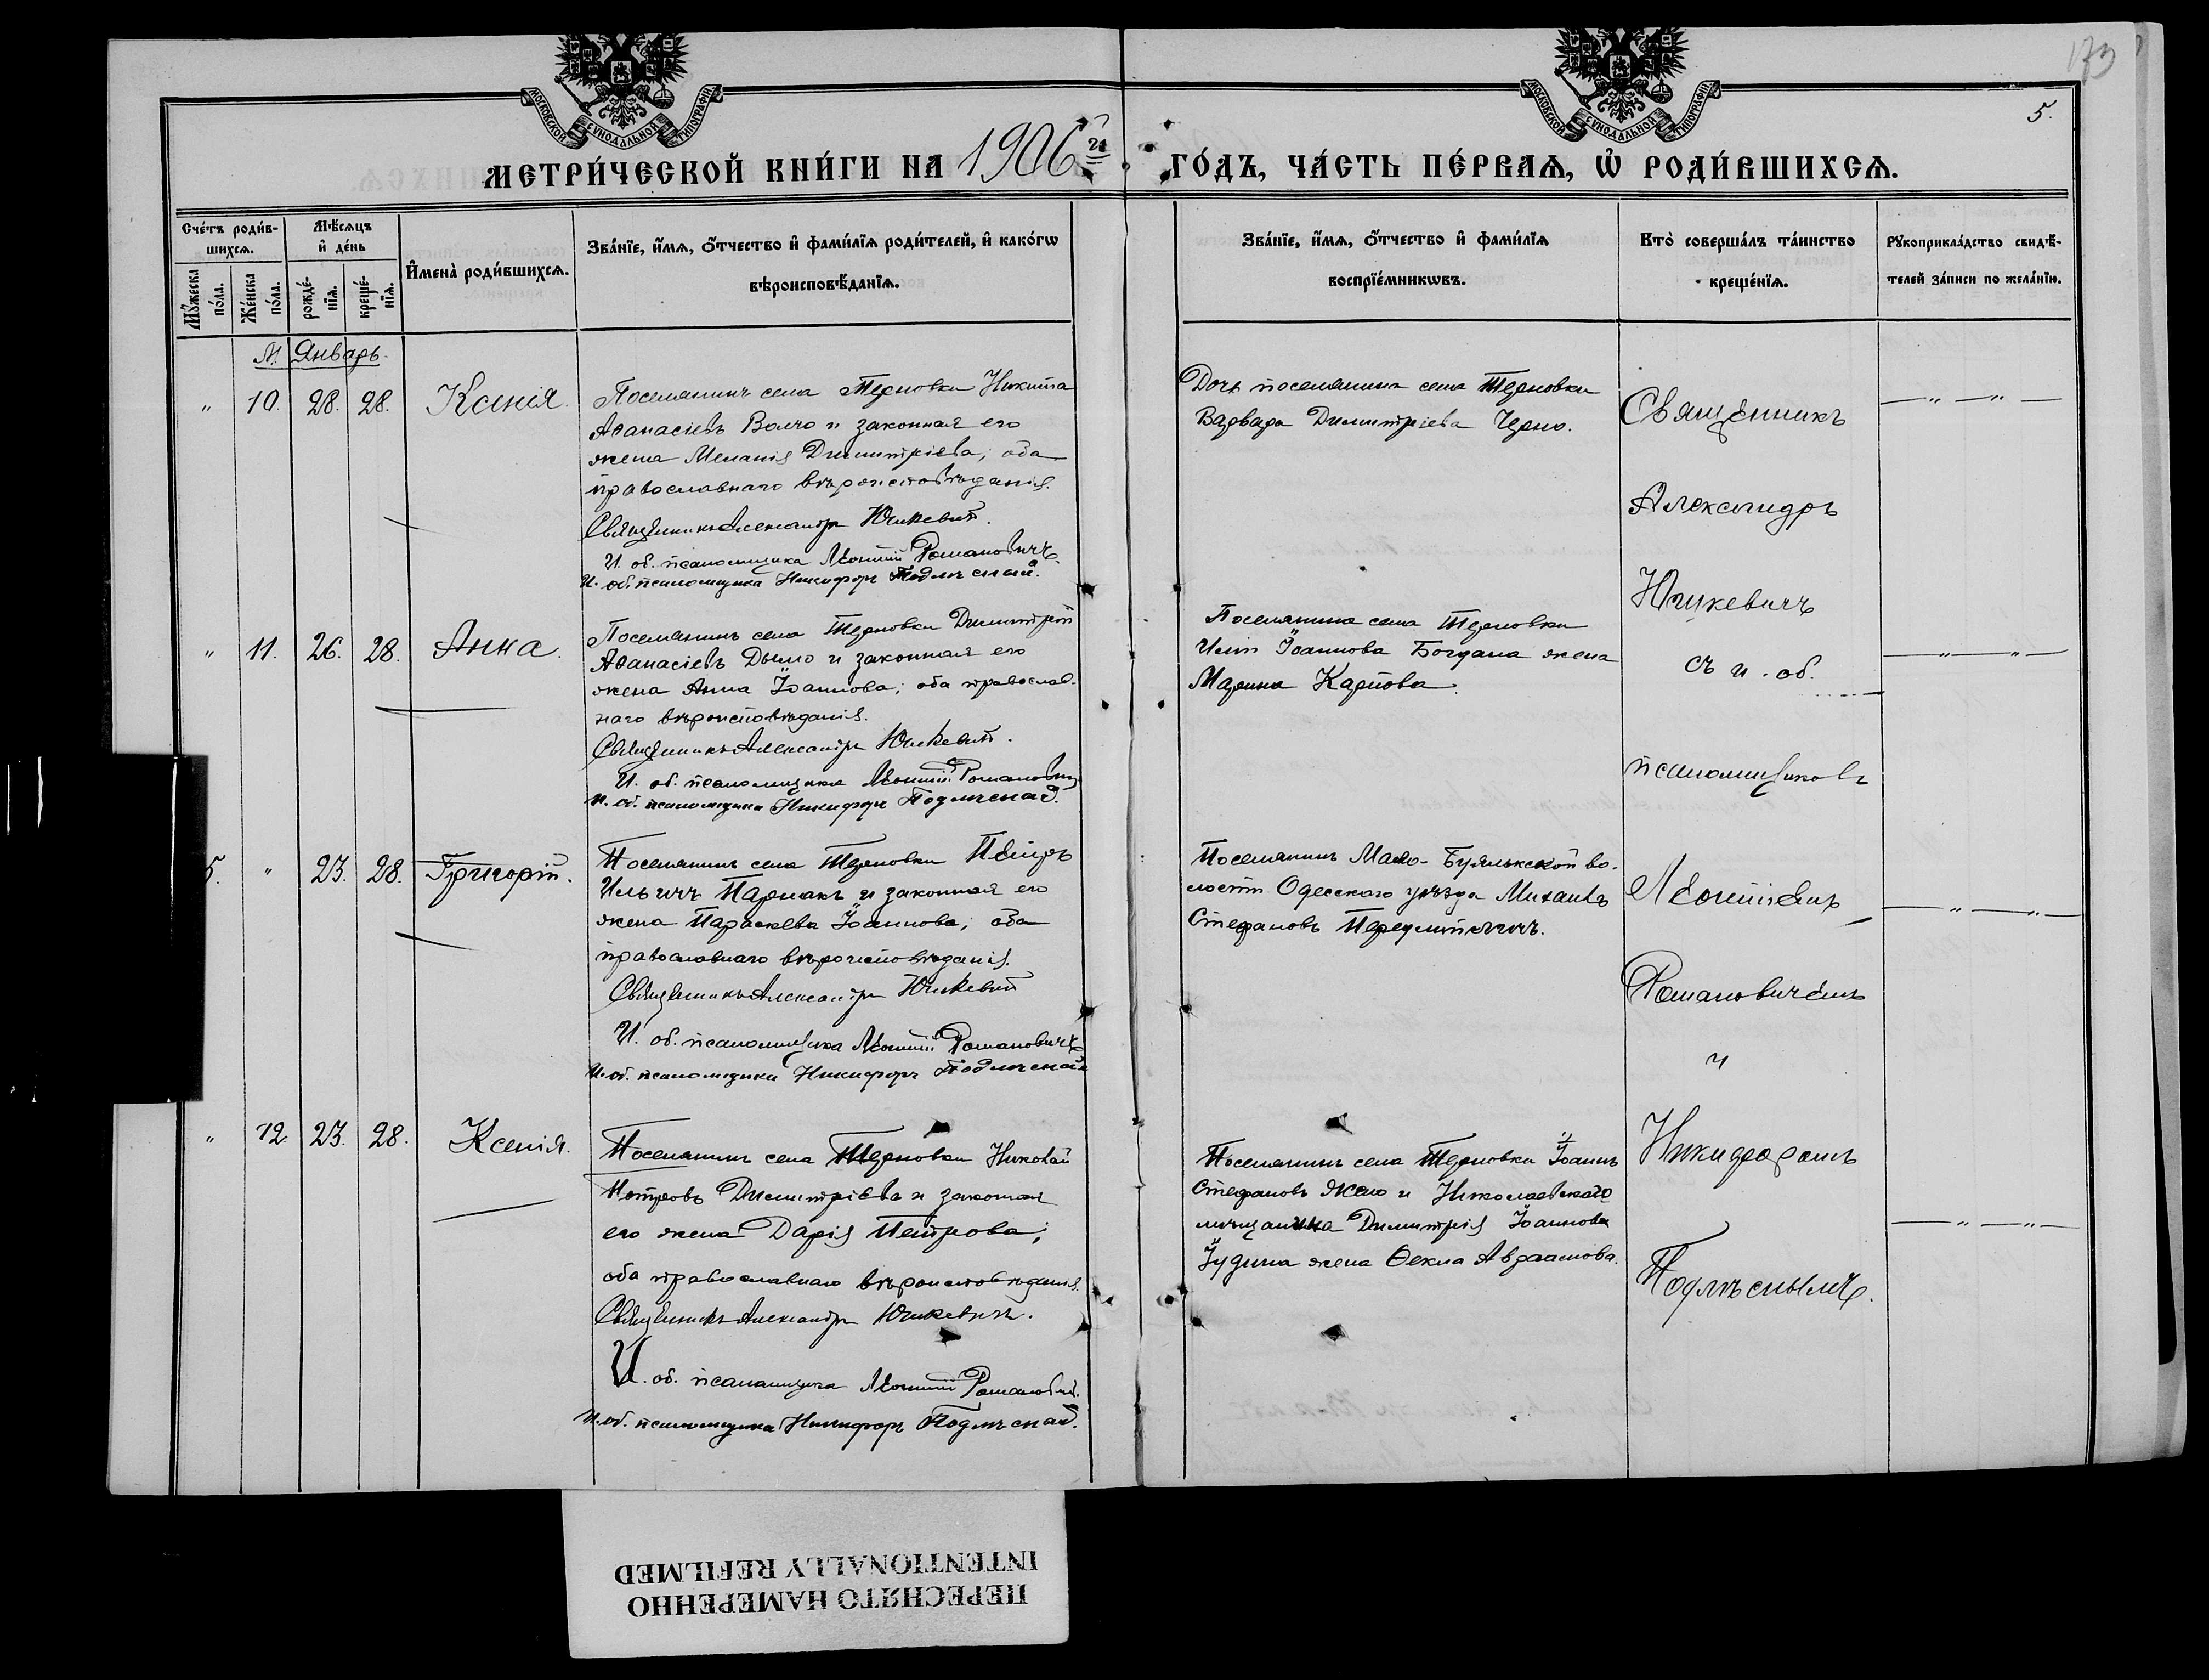 173
5.
МОСКОВСКОЙ СѴНОДАЛЬНОЙ ТИПОГРАФІИ
МОСКОВСКОЙ СѴНОДАЛЬНОЙ ТИПОГРАФІИ
МЕТРИ́ЧЕСКОЙ КНИ́ГИ НА 1906 й ГО́ДЪ, ЧА́СТЬ ПЕ́РВАѦ, Ѡ҆ РОДИ́ВШИХСѦ.
Сче́тъ роди́в-
шихсѧ.
Мꙋ́жеска
по́ла.
Же́нска
по́ла.
Мѣ́сѧцъ
и҆ де́нь
рожде́-
нїѧ.
креще́-
нїѧ.
И҆мена̀ роди́вшихсѧ.
Зва́нїе, и҆́мѧ, ѻ҆́тчество и҆ фами́лїѧ роди́телей, и҆ како́гѡ
вѣроисповѣ́данїѧ.
Зва́нїе, и҆́мѧ, ѻ҆́тчество и҆ фами́лїѧ
воспрїе́мникѡвъ.
Кто̀ соверша́лъ та́инство
креще́нїѧ.
Рꙋкоприкла́дство свидѣ́-
телей за́писи по жела́нїю.
М. Январь.
" 10. 28. 28. Ксенія.
Поселянинъ села Терновки Никита
Аѳанасіевъ Волчо и законная его
жена Меланія Димитріева; оба
православнаго вѣроисповѣданія.
Священникъ Александръ Юшкевичъ.
И. об. псаломщика Леонтій Романовичъ.
И. об. псаломщика Никифоръ Подлѣсный.
Дочь поселянина села Терновки
Варвара Димитріева Черно.
— " — " —
" 11. 26. 28. Анна.
Поселянинъ села Терновки Димитрій
Аѳанасіевъ Дымо и законная его
жена Анна Іоаннова; оба православ-
наго вѣроисповѣданія.
Священникъ Александръ Юшкевичъ.
И. об. псаломщика Леонтій Романовичъ
И. об. псаломщика Никифоръ Подлѣсный.
Поселянина села Терновки
Іоаннова Богдана жена
Марина Карпова.
— " — " —
5. " 23. 28. Григорій.
Поселянинъ села Терновки Петръ
Ильичъ Пармакъ и законная его
жена Параскева Іоаннова; оба
православнаго вѣроисповѣданія.
Священникъ Александръ Юшкевичъ
И. об. псаломщика Леонтій Романовичъ
И. об. псаломщика Никифоръ Подлѣсный
Поселянинъ Мало-Буялыкской во-
лости Одесскаго уѣзда Михаилъ
Стефановъ
— " — " —
" 12. 23. 28. Ксенія.
Поселянинъ села Терновки Николай
Петровъ Димитріевъ и законная
его жена Дарія Петрова;
оба православнаго вѣроисповѣданія.
Священникъ Александръ Юшкевичъ.
И. об. псаломщика Леонтій Романовичъ.
И. об. псаломщика Никифоръ Подлѣсный.
Поселянинъ села Терновки Іоаннъ
Стефановъ Жело и Николаевскаго
мѣщанина Димитрія Іоаннова
Іудина жена Ѳекла Авраамова.
— " — " —
Священникъ
Александръ
Юшкевичъ
съ и. об.
псаломщиковъ
Леонтіемъ
Романовичемъ
и
Никифоромъ
Подлѣснымъ.
ПЕРЕСНЯТО НАМЕРЕННО
INTENTIONALLY REFILMED